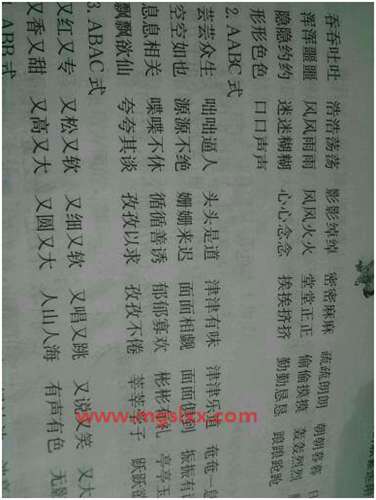 吞吞吐吐 浩浩荡荡 影影绰绰 密密麻麻 疏疏朗朗 朝朝暮暮
浑浑噩噩 风风雨雨 风风火火 堂堂正正 偷偷摸摸 轰轰烈烈
隐隐约约 迷迷糊糊 心心念念 挨挨挤挤 勤勤恳恳 踉踉跄跄
形形色色 口口声声
2. AABC 式
芸芸众生 咄咄逼人 头头是道 津津有味 津津乐道 奄奄一
空空如也 源源不绝 姗姗来迟 面面相觑 面面俱到 振振有
息息相关 喋喋不休 循循善诱 郁郁寡欢 彬彬有礼 亭亭玉
飘飘欲仙 夸夸其谈 孜孜以求 孜孜不倦 莘莘学子 跃跃
3. ABAC 式
又红又专 又松又软 又细又软 又唱又跳 又说又笑 又大
又香又甜 又高又大 又圆又大 人山人海 有声有色 无
ABB 式